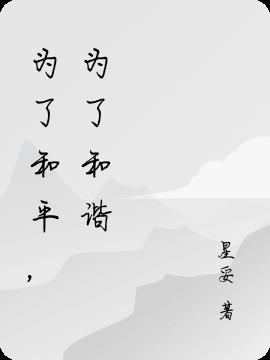 为了和平，
为了和谐
星妥 著